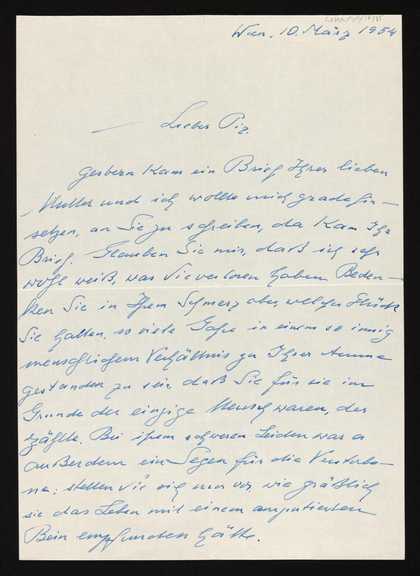 Wien, 10. März 1954
Lieber Piz.
Gestern kam ein Brief Ihrer lieben
Mutter und ich wollte mich grade hin-
setzen, an Sie zu schreiben, da kam Ihr
Brief. Glauben Sie mir, daß ich sehr
wohl weiß, was Sie verloren haben. Beden-
ken Sie in Ihrem Schmerz aber, welches Glück
Sie hatten, so viele Jahre in einem so innig
menschlichem Verhältnis zu Ihrer
gestanden zu sein, daß Sie für sie im
Grunde der einzige Mensch waren, der
zählte. Bei ihrem schweren Leiden war es
außerdem ein Segen für die Verstorbe-
ne: stellen Sie sich nur vor, wie gräßlich
sie das Leben mit einem amputierten
Bein empfunden hätte.